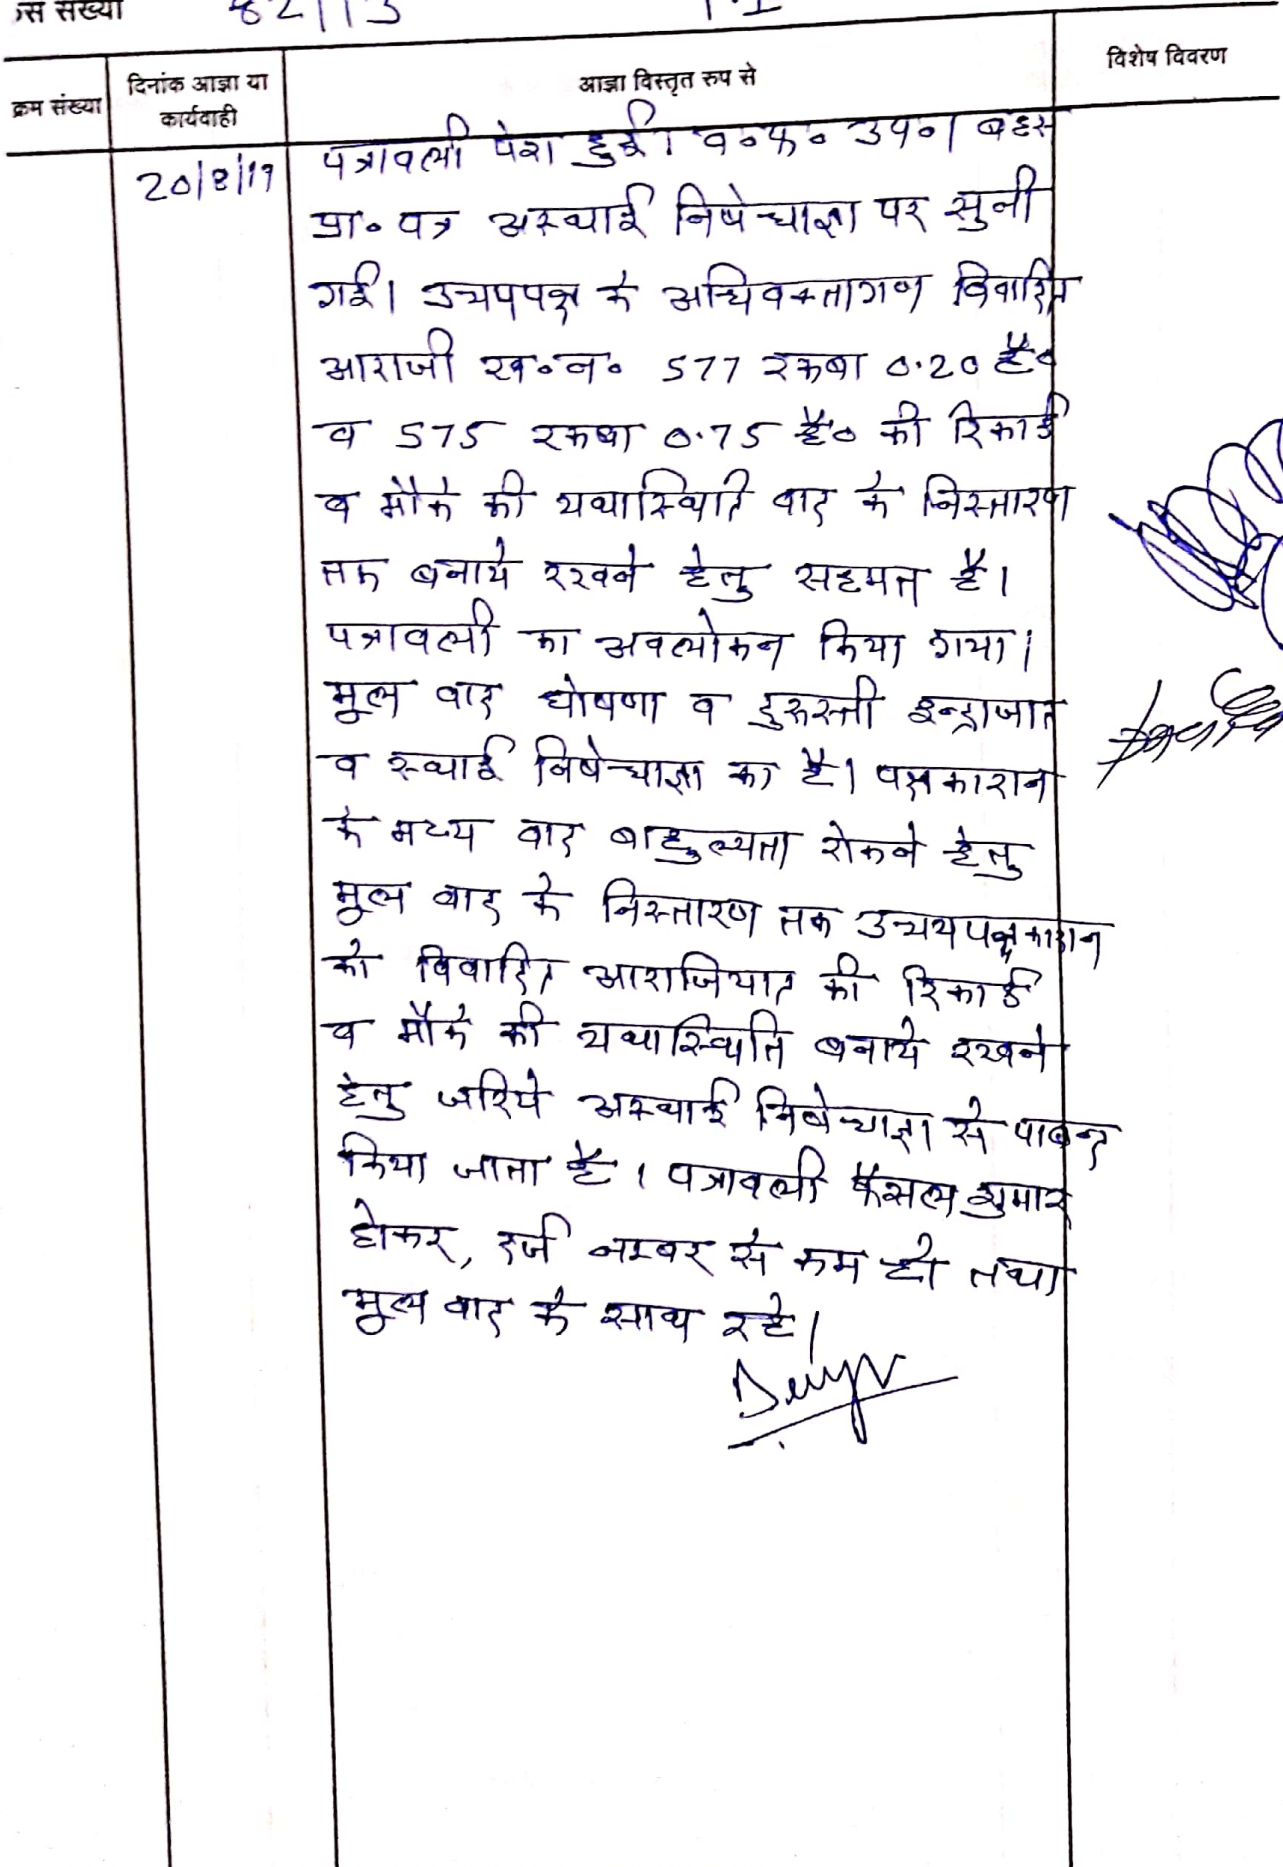 संख्या 82/13 T.I
क्रम संख्या
दिनांक आज्ञा या
कार्यवाही
आज्ञा विस्तृत रुप से
विशेष विवरण
20/8/19
पत्रावली पेश हुई। व०फ० उप०। बहस
प्रा० पत्र अस्थाई निषेधाज्ञा पर सुनी
गई। उभयपक्ष के अधिवक्तागण विवादित
आराजी ख०न० 577 रकबा 0.20 है०
व 575 रकबा 0.75 है० की रिकार्ड
व मौके की यथास्थिति वाद के निस्तारण
तक बनाये रखने हेतु सहमत है।
पत्रावली का अवलोकन किया गया।
मूल वाद घोषणा व दुरुस्ती इन्द्राजात
व स्थाई निषेधाज्ञा का है। पक्षकारान
के मध्य वाद बाहुल्यता रोकने हेतु
मूल वाद के निस्तारण तक उभयपक्षकारान
को विवादित आराजियात की रिकार्ड
व मौके की यथास्थिति बनाये रखने
हेतु जरिये अस्थाई निषेधाज्ञा से पाबन्द
किया जाता है। पत्रावली फैसल शुमार
होकर, दर्ज नम्बर से कम हो तथा
मूल वाद के साथ रहे।